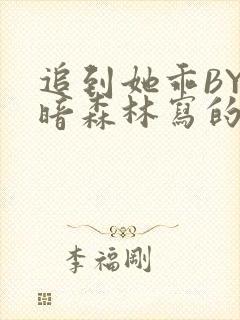 追到她乖BY
暗森林寫的
李福剛